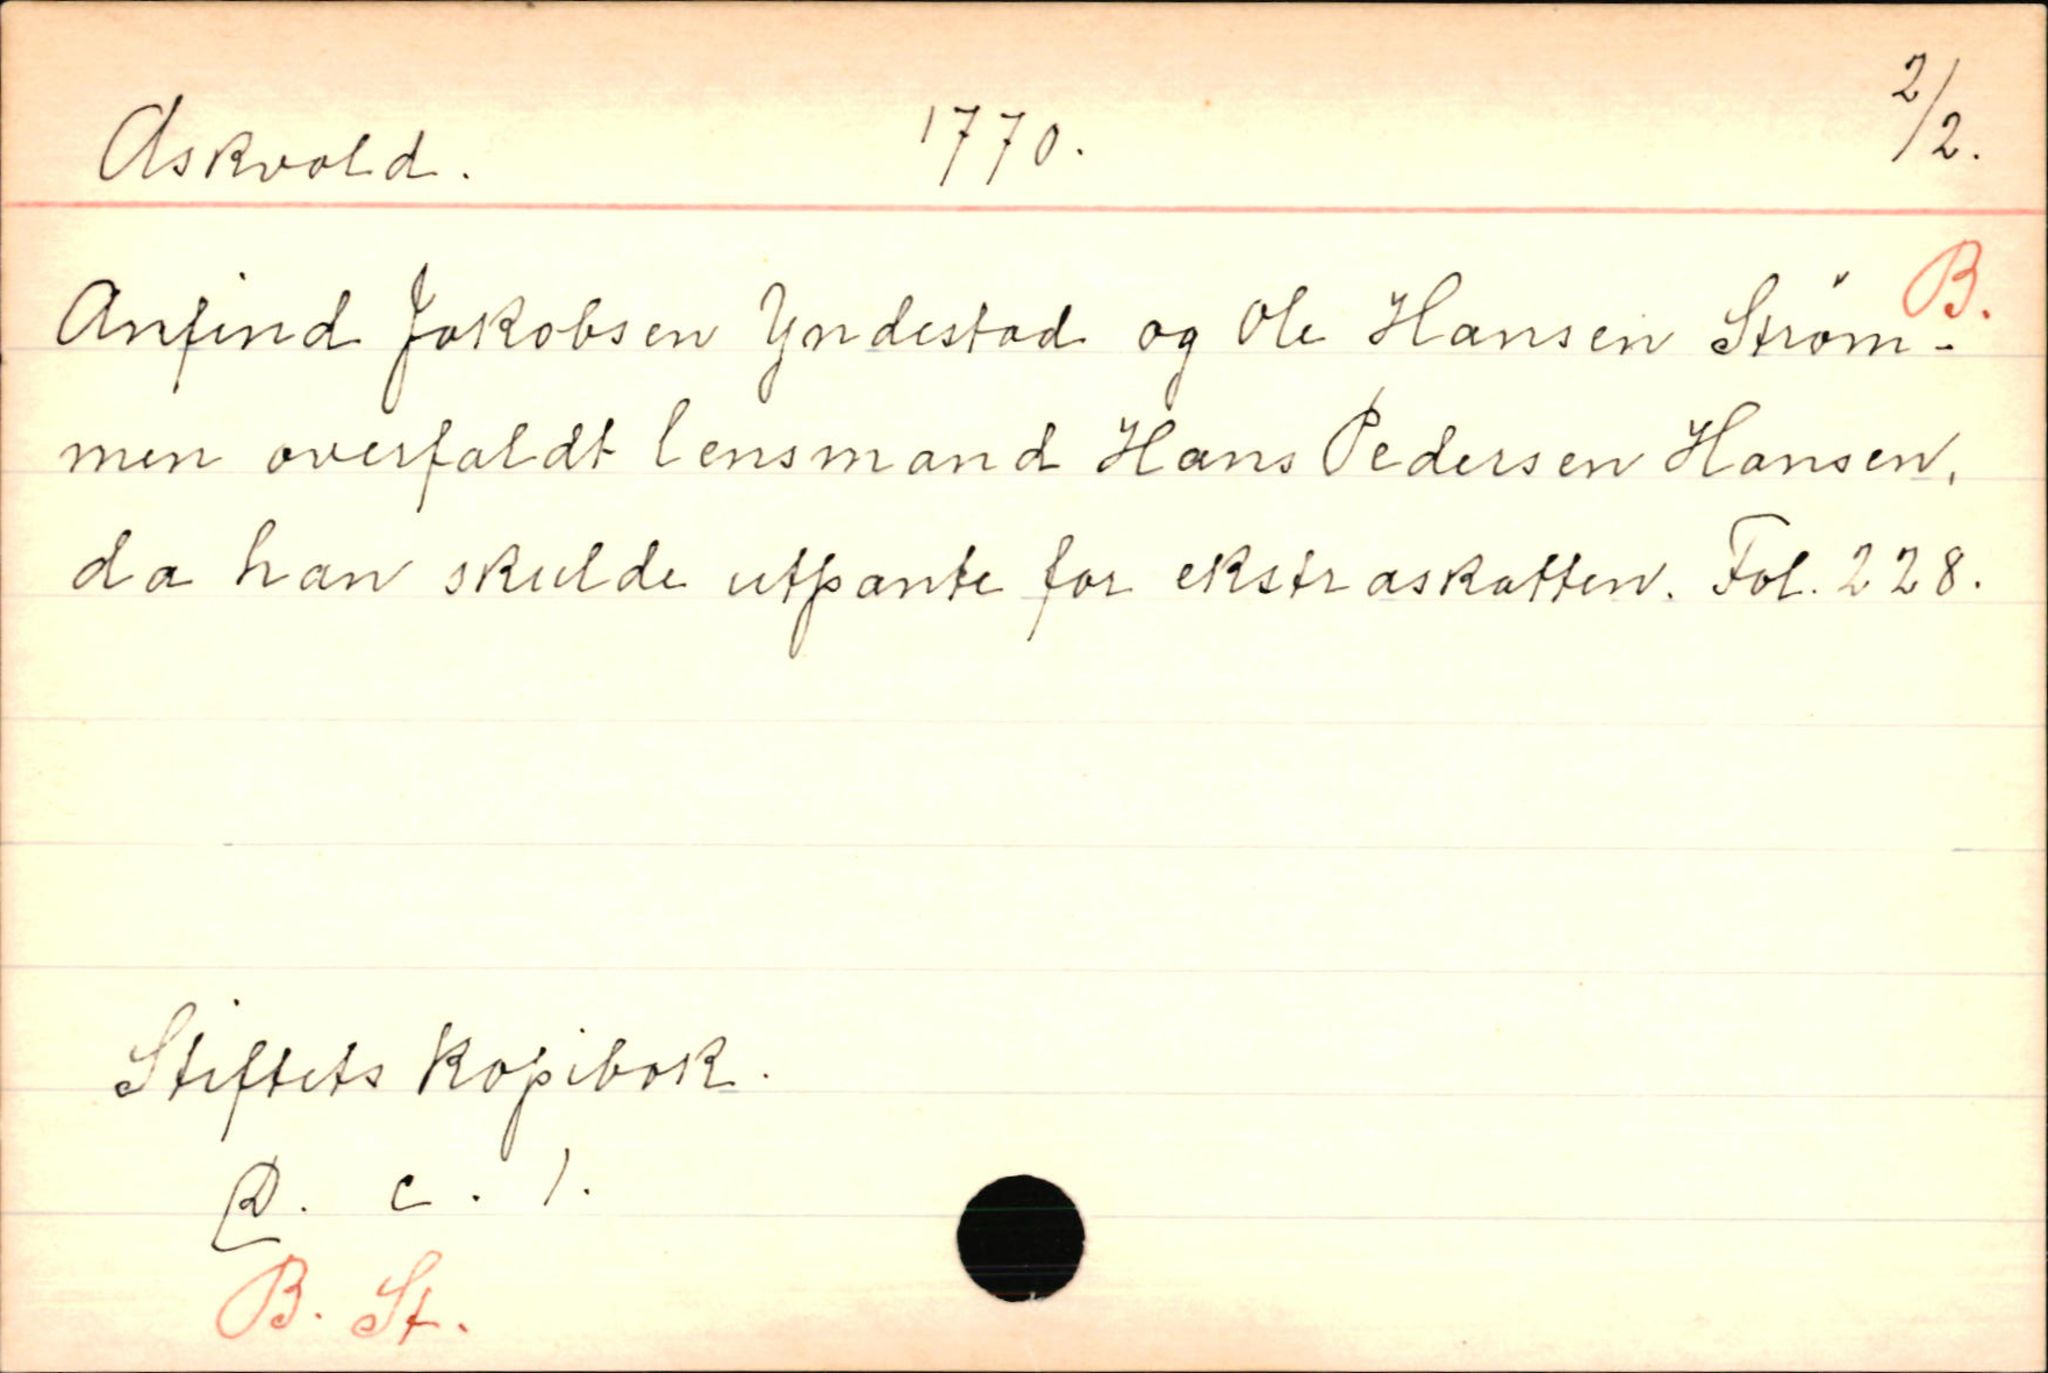 Askvold. 1770. 2/2.
B.
Anfind Jakobsen Yndestad og Ole Hansen Ström-
men overfaldt lensmand Hans Pedersen Hansen,
da han skulde utpante for ekstraskatten. Fol. 228.
Stiftets kopibok.
c. 1.
B. St.